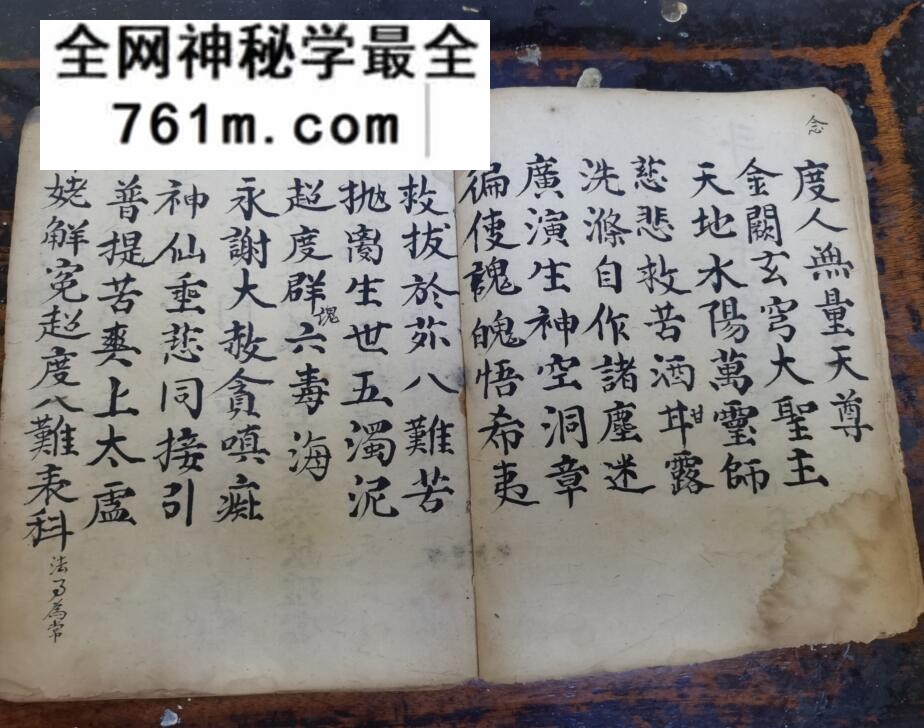 全网神秘学最全
761m.com
念
度人無量天尊
金闕玄穹大聖主
天地水陽萬靈師
慈悲救苦洒甘露
洗滌自作諸塵迷
廣演生神空洞章
徧使魂魄悟希夷
救拔於苏八難苦
拋離生世五濁泥
超度群六毒海
魂
永謝大赦貪嗔痴
神仙垂慈同接引
普提苦爽上太虛
解冤超度八難表科
法事為常